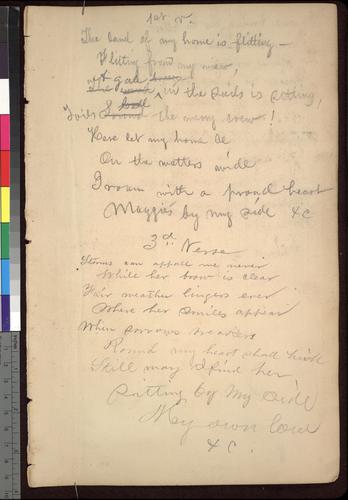 1st v.
The land of my home is flitting —
Flitting from my view,
A gale in the sails is sitting,
Toils the merry crew!
Here let my home be
On the waters wide
I roam with a proud heart
Maggie's by my side &c
3d Verse
Storms can appall me never
While her brow is clear
Fair weather lingers ever
Where her smiles appear
When sorrows breakers
Round my heart shall hide
Still may I find her
Sitting by my side
My own love
&c.